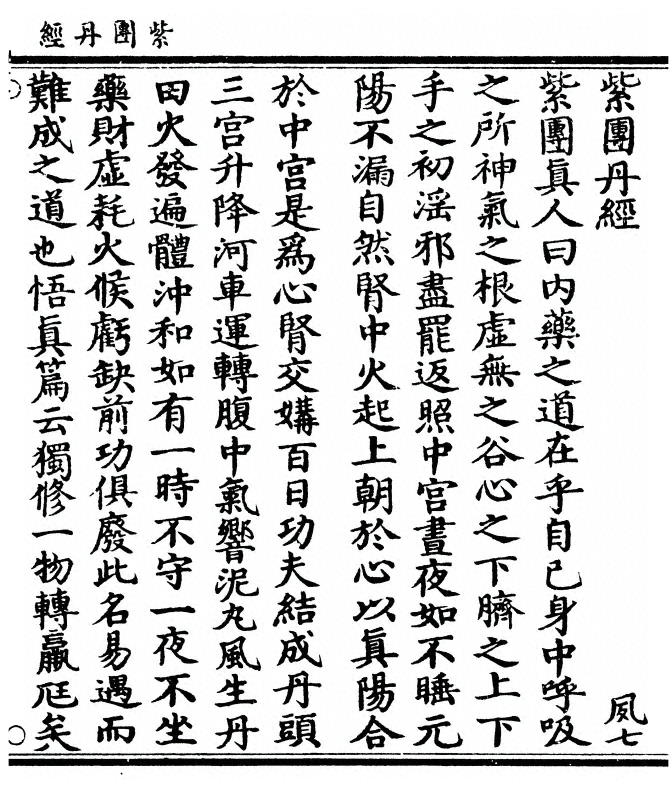 紫團丹經
紫團丹經
夙七
紫團眞人曰內藥之道在乎自己身中呼吸
之所神氣之根虛無之谷心之下臍之上下
手之初滛邪盡罷返照中宮晝夜如不睡元
陽不漏自然腎中火起上朝於心以眞陽合
於中宮是爲心腎交媾百日功夫結成丹頭
三宮升降河車運轉腹中氣響泥丸風生丹
田火發遍體沖和如有一時不守一夜不坐
藥財虛耗火候虧缺前功俱廢此名易遇而
難成之道也悟眞篇云獨修一物轉羸尫矣